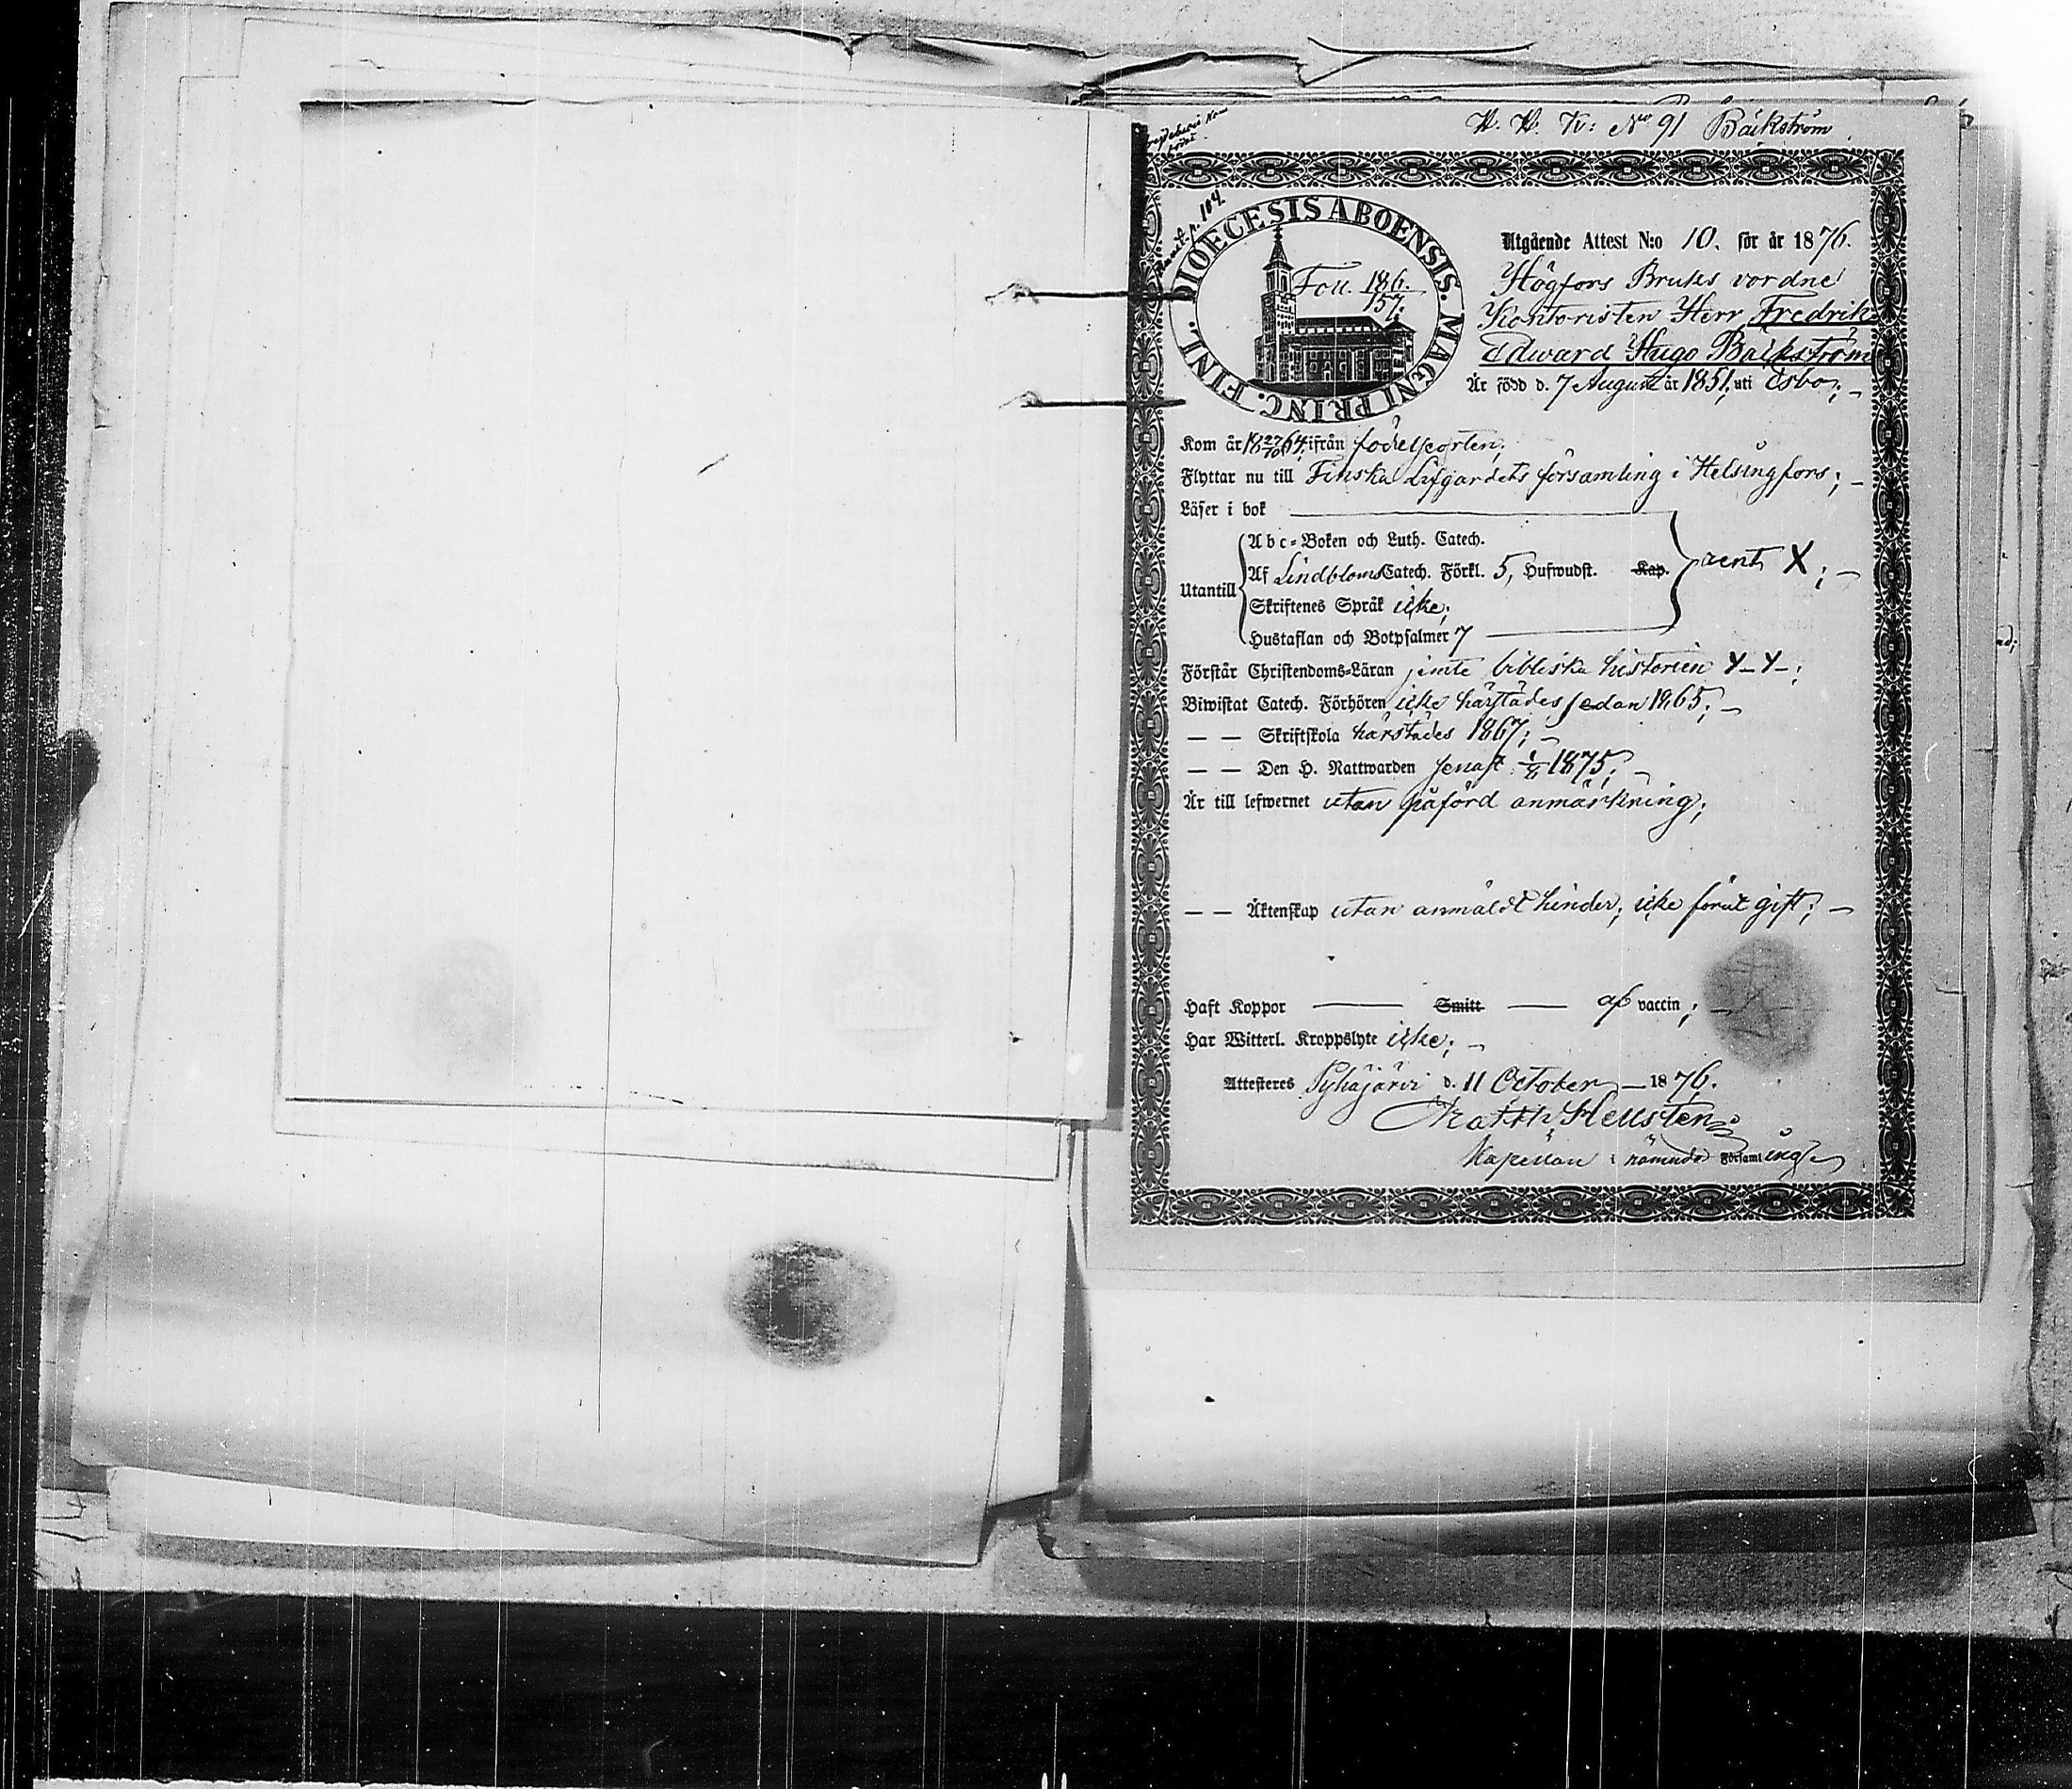 W. W. K: No 91 Bäckström
Annot. p. 104.
DIOECESIS ABOENSIS. MAGNI PRINC. FINL.
Foll. 186.
157.
Utgående Attest N:o 10. för år 1876.
Högfors Bruks vordne
Kontoristen Herr Fredrik
Edward Hugo Bäckström
Är född d. 7 August år 1851, uti Esbo; –
Kom år 18 27/10 64, ifrån födelseorten;
Flyttar nu till Finska Lifgardets församling i Helsingfors; –
Läser i bok
Abc-Boken och Luth. Catech.
Utantill Af Lindbloms Catech. Förkl. 5, Hufwudst. Kap. rent X; –
Skriftenes Språk icke;
Hustaflan och Botpsalmer 7
Förstår Christendoms-Läran jemte bibliska historien Y–Y–;
Biwistat Catech. Förhören icke härstädes sedan 1865; –
— — Skriftskola härstädes 1867; –
— — Den H. Nattwarden senast 1/8 1875; –
Är till lefwernet utan påförd anmärkning;
— — Äktenskap utan anmäldt hinder; icke förut gift; –
Haft Koppor — Smitt — af vaccin; –
Har Witterl. Kroppslyte icke; –
Attesteres Pyhäjärvi d. 11 October – 1876.
Matth. Hellsten
Kapellan i nämnde Församling